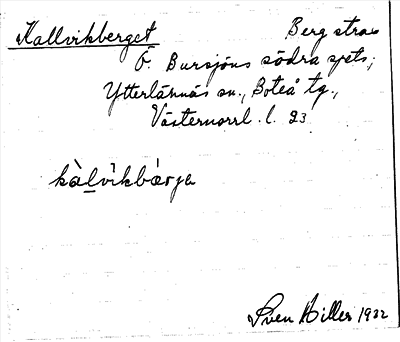 Kallvikberget Berg strax
Ö. Bursjöns södra spets,
Ytterlännäs sn., Boteå tg.,
Västernorrl. l. 23
kàlvìkbærja
Sven Hiller 1932